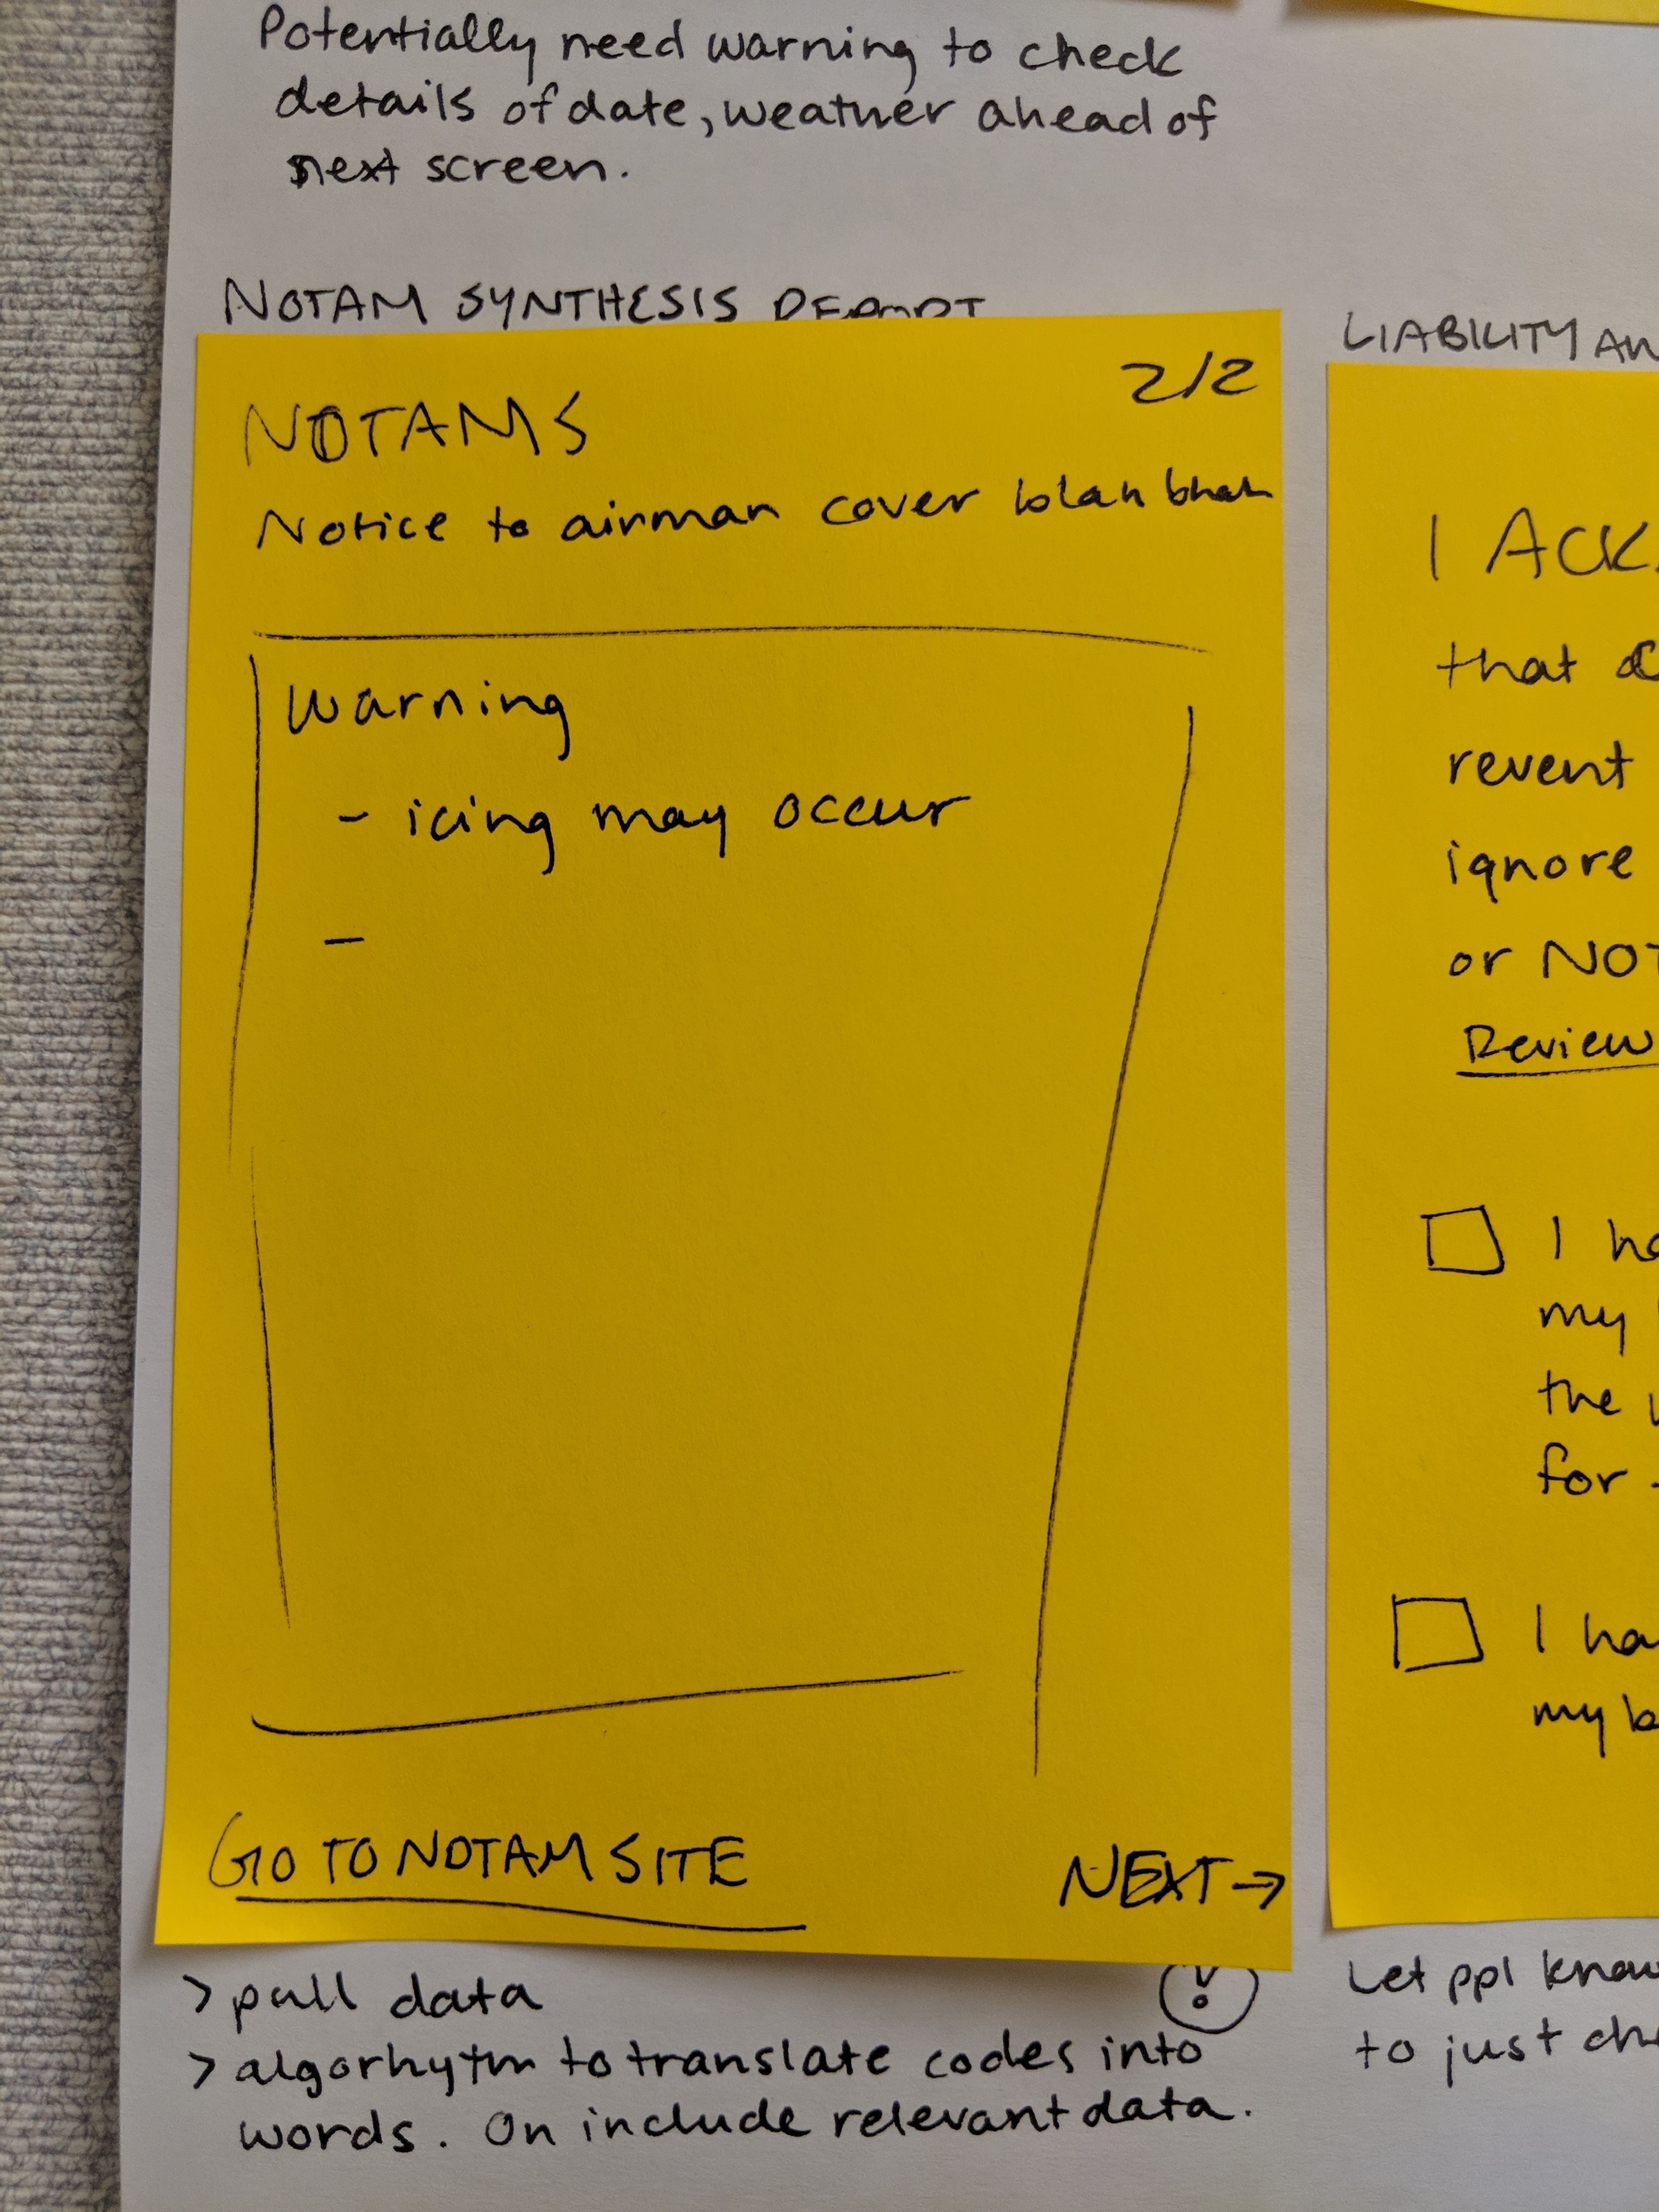 Potentially need warning to check
details of date, weather ahead of
next screen.
NOTAM SYNTHESIS REPORT
2/2
NOTAMS
Notice to airman cover blah blah
Warning
- icing may occur
-
GO TO NOTAM SITE
NEXT →
> pull data
!
> algorhytm to translate codes into
words. On include relevant data.
LIABILITY
I ACK
that
revent
ignore
or NOT
Review
I ha
my
the
for
I ha
my b
Let ppl know
to just che